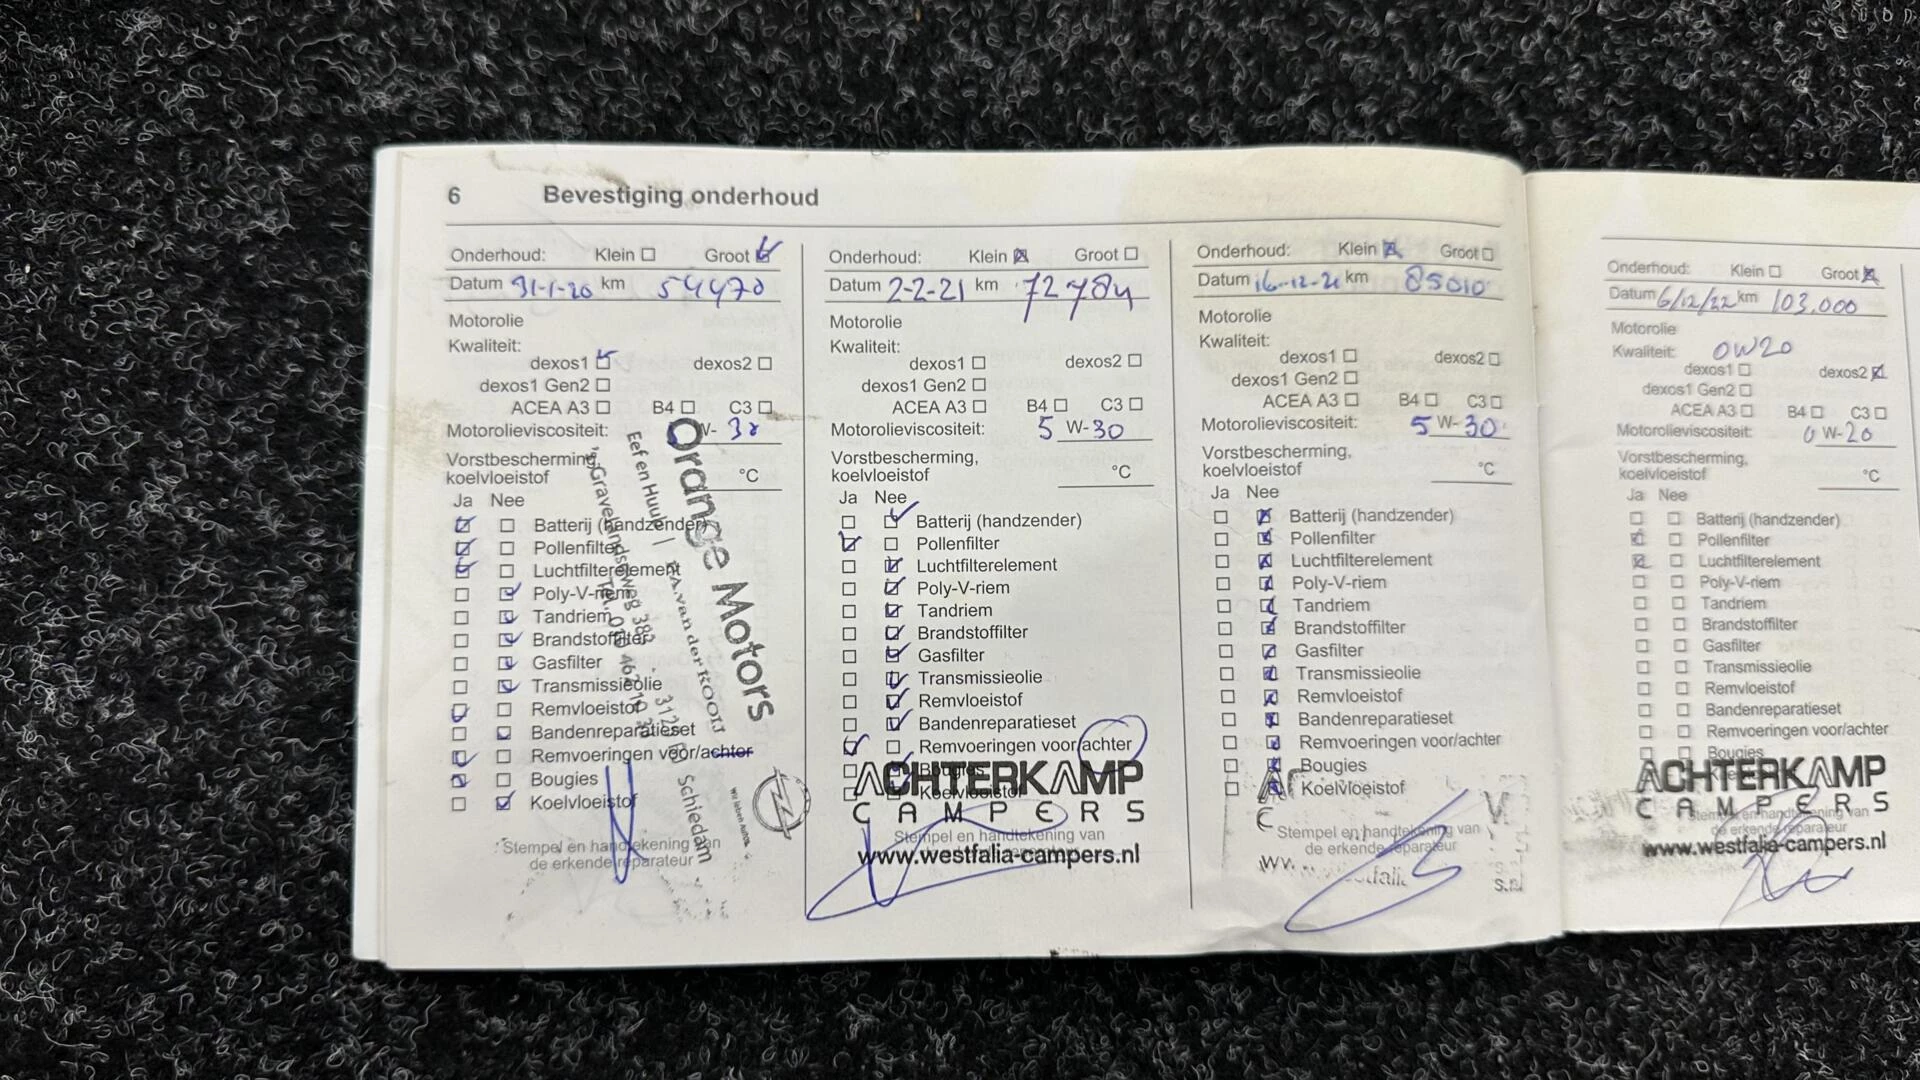 6 Bevestiging onderhoud
Onderhoud: Klein Groot
Datum 31-1-20 km 54470
Motorolie
Kwaliteit:
dexos1 dexos2
dexos1 Gen2
ACEA A3 B4 C3
Motorolieviscositeit: W- 30
Vorstbescherming,
koelvloeistof °C
Ja Nee
Batterij (handzender)
Pollenfilter
Luchtfilterelement
Poly-V-riem
Tandriem
Brandstoffilter
Gasfilter
Transmissieolie
Remvloeistof
Bandenreparatieset
Remvoeringen voor/achter
Bougies
Koelvloeistof
Stempel en handtekening van
de erkende reparateur
Orange Motors
Eef en Huub
R.A. van der KOOIJ
's-Gravelandseweg 383
Schiedam
Wir leben Autos
Onderhoud: Klein Groot
Datum 2-2-21 km 72784
Motorolie
Kwaliteit:
dexos1 dexos2
dexos1 Gen2
ACEA A3 B4 C3
Motorolieviscositeit: 5 W-30
Vorstbescherming,
koelvloeistof °C
Ja Nee
Batterij (handzender)
Pollenfilter
Luchtfilterelement
Poly-V-riem
Tandriem
Brandstoffilter
Gasfilter
Transmissieolie
Remvloeistof
Bandenreparatieset
Remvoeringen voor/achter
Bougies
Koelvloeistof
ACHTERKAMP
CAMPERS
Stempel en handtekening van
de erkende reparateur
www.westfalia-campers.nl
Onderhoud: Klein Groot
Datum 16-12-21 km 85010
Motorolie
Kwaliteit:
dexos1 dexos2
dexos1 Gen2
ACEA A3 B4 C3
Motorolieviscositeit: 5 W-30
Vorstbescherming,
koelvloeistof °C
Ja Nee
Batterij (handzender)
Pollenfilter
Luchtfilterelement
Poly-V-riem
Tandriem
Brandstoffilter
Gasfilter
Transmissieolie
Remvloeistof
Bandenreparatieset
Remvoeringen voor/achter
Bougies
Koelvloeistof
Stempel en handtekening van
de erkende reparateur
Onderhoud: Klein Groot
Datum 6/12/22 km 103.000
Motorolie
Kwaliteit: 0W20
dexos1 dexos2
dexos1 Gen2
ACEA A3 B4 C3
Motorolieviscositeit: 0 W-20
Vorstbescherming,
koelvloeistof °C
Ja Nee
Batterij (handzender)
Pollenfilter
Luchtfilterelement
Poly-V-riem
Tandriem
Brandstoffilter
Gasfilter
Transmissieolie
Remvloeistof
Bandenreparatieset
Remvoeringen voor/achter
Bougies
ACHTERKAMP
CAMPERS
Stempel en handtekening van
de erkende reparateur
www.westfalia-campers.nl